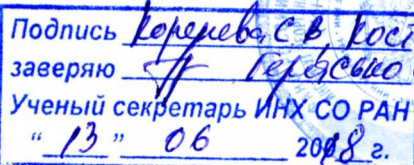 Подпись Коренева, С В, Кост
заверяю Герасько О
Ученый секретарь ИНХ СО РАН
“ 13 ” 06 2018 г.